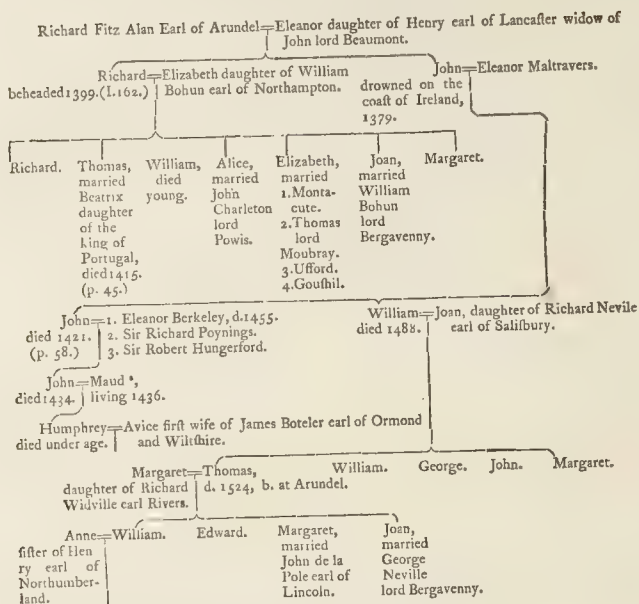 Richard Fitz Alan Earl of Arundel=Eleanor daughter of Henry earl of Lancaſter widow of
John lord Beaumont.
Richard=Elizabeth daughter of William
beheaded 1399. (I. 162.) Bohun earl of Northampton.
John=Eleanor Maltravers.
drowned on the
coaſt of Ireland,
1379.
Richard.
Thomas,
married
Beatrix
daughter
of the
king of
Portugal,
died 1415.
(p. 45.)
William,
died
young.
Alice,
married
John
Charleton
lord
Powis.
Elizabeth,
married
1. Monta-
cute.
2. Thomas
lord
Moubray.
3. Ufford.
4. Gouſhil.
Joan,
married
William
Bohun
lord
Bergavenny.
Margaret.
John=1. Eleanor Berkeley, d. 1455.
died 1421. 2. Sir Richard Poynings.
(p. 58.) 3. Sir Robert Hungerford.
William=Joan, daughter of Richard Nevile
died 1488. earl of Saliſbury.
John=Maud *,
died 1434. living 1436.
Humphrey=Avice firſt wife of James Boteler earl of Ormond
died under age. and Wiltſhire.
Margaret=Thomas,
daughter of Richard d. 1524, b. at Arundel.
Widville earl Rivers.
William. George. John. Margaret.
Anne=William.
ſiſter of Hen
ry earl of
Northumber-
land.
Edward.
Margaret,
married
John de la
Pole earl of
Lincoln.
Joan,
married
George
Neville
lord Bergavenny.